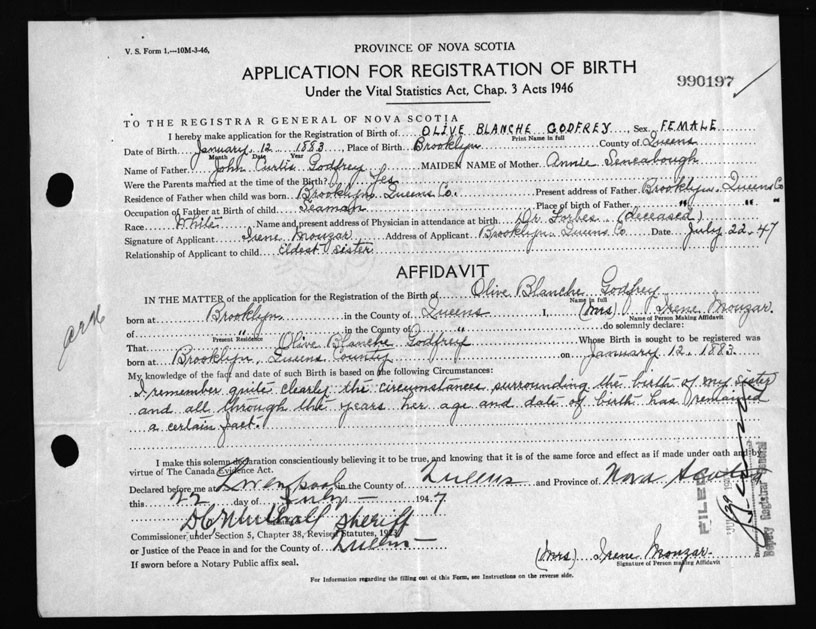 V. S. Form 1.—10M-3-46,
PROVINCE OF NOVA SCOTIA
APPLICATION FOR REGISTRATION OF BIRTH
Under the Vital Statistics Act, Chap. 3 Acts 1946
990197
TO THE REGISTRAR GENERAL OF NOVA SCOTIA
I hereby make application for the Registration of Birth of OLIVE BLANCHE GODFREY, Sex FEMALE
Print Name in full
Date of Birth January 12 1883, Place of Birth Brooklyn County of Queens
Month Date Year
Name of Father John Curtis Godfrey MAIDEN NAME of Mother Annie
Were the Parents married at the time of the Birth? Yes
Residence of Father when child was born Brooklyn Queens Co. Present address of Father Brooklyn. Queens Co
Occupation of Father at Birth of child Seaman Place of birth of Father " " "
Race White Name and present address of Physician in attendance at birth Dr Forbes (deceased)
Signature of Applicant Irene Mouzar Address of Applicant Brooklyn Queens Co Date July 22-47
Relationship of Applicant to child eldest sister
AFFIDAVIT
IN THE MATTER of the application for the Registration of the Birth of Olive Blanche Godfrey
Name in full
born at Brooklyn in the County of Queens I, (Mrs) Irene Mouzar.
Name of Person Making Affidavit
of " in the County of " do solemnly declare:
Present Residence
That Olive Blanche Godfrey Whose Birth is sought to be registered was
born at Brooklyn, Queens County on January 12, 1883.
My knowledge of the fact and date of such Birth is based on the following Circumstances:
I remember quite clearly the circumstances surrounding the birth of my sister
and all through the years her age and date of birth has remained
a certain fact.
I make this solemn declaration conscientiously believing it to be true, and knowing that it is of the same force and effect as if made under oath and by
virtue of The Canada Evidence Act.
Declared before me at Liverpool in the County of Queens and Province of Nova Scotia
this 22 day of July 1947
Sheriff
Commissioner under Section 5, Chapter 38, Revised Statutes, 1923
or Justice of the Peace in and for the County of Queens
If sworn before a Notary Public affix seal.
(Mrs) Irene Mouzar.
Signature of Person making Affidavit
For Information regarding the filling out of this Form, see Instructions on the reverse side.
FILED
Deputy Registrar General